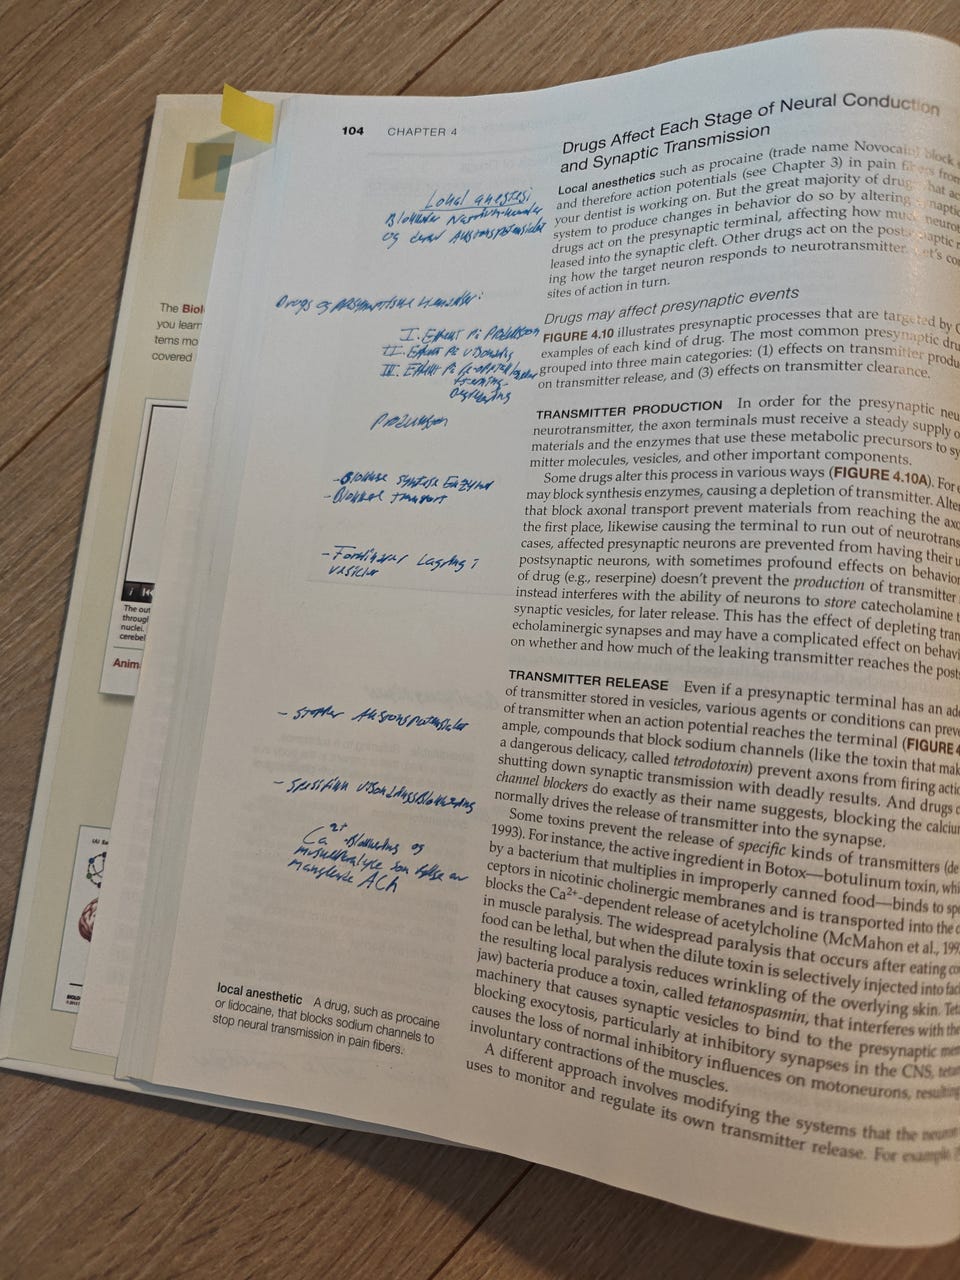 104 CHAPTER 4
Drugs Affect Each Stage of Neural Conduction
and Synaptic Transmission
Local anesthetics such as procaine (trade name Novocain) block
and therefore action potentials (see Chapter 3) in pain fibers from
your dentist is working on. But the great majority of drugs that
system to produce changes in behavior do so by altering
drugs act on the presynaptic terminal, affecting how much
leased into the synaptic cleft. Other drugs act on the postsynaptic
ing how the target neuron responds to neurotransmitter. Let's
sites of action in turn.
Drugs may affect presynaptic events
FIGURE 4.10 illustrates presynaptic processes that are targeted by
examples of each kind of drug. The most common presynaptic
grouped into three main categories: (1) effects on transmitter
on transmitter release, and (3) effects on transmitter clearance.
TRANSMITTER PRODUCTION In order for the presynaptic
neurotransmitter, the axon terminals must receive a steady supply
materials and the enzymes that use these metabolic precursors to
mitter molecules, vesicles, and other important components.
Some drugs alter this process in various ways (FIGURE 4.10A). For
may block synthesis enzymes, causing a depletion of transmitter.
that block axonal transport prevent materials from reaching the
the first place, likewise causing the terminal to run out of
cases, affected presynaptic neurons are prevented from having their
postsynaptic neurons, with sometimes profound effects on
of drug (e.g., reserpine) doesn't prevent the production of transmitter
instead interferes with the ability of neurons to store catecholamine
synaptic vesicles, for later release. This has the effect of depleting
echolaminergic synapses and may have a complicated effect on
on whether and how much of the leaking transmitter reaches the
TRANSMITTER RELEASE Even if a presynaptic terminal has an
of transmitter stored in vesicles, various agents or conditions can
of transmitter when an action potential reaches the terminal (FIGURE
ample, compounds that block sodium channels (like the toxin that
a dangerous delicacy, called tetrodotoxin) prevent axons from firing
shutting down synaptic transmission with deadly results. And drugs
channel blockers do exactly as their name suggests, blocking the
normally drives the release of transmitter into the synapse.
Some toxins prevent the release of specific kinds of transmitters (de
1993). For instance, the active ingredient in Botox—botulinum toxin,
by a bacterium that multiplies in improperly canned food—binds to
ceptors in nicotinic cholinergic membranes and is transported into the
blocks the Ca2+-dependent release of acetylcholine (McMahon et al.,
in muscle paralysis. The widespread paralysis that occurs after eating
food can be lethal, but when the dilute toxin is selectively injected into
the resulting local paralysis reduces wrinkling of the overlying skin.
jaw) bacteria produce a toxin, called tetanospasmin, that interferes with the
machinery that causes synaptic vesicles to bind to the presynaptic
blocking exocytosis, particularly at inhibitory synapses in the CNS,
causes the loss of normal inhibitory influences on motoneurons,
involuntary contractions of the muscles.
A different approach involves modifying the systems that the
uses to monitor and regulate its own transmitter release. For example
Lokal anestesi
Blokkerer
og derav Aksjonspotensialet
Drugs og presynaptiske
I. Effekt på Produksjon
II. Effekt på
III. Effekt på
Produksjon
- Blokkere syntese Enzymer
- Blokker transport
- Forhindrer Lagring i
vesicler
- stopper Aksjonspotensialet
- spesifikk
Ca2+ -Blokkering og
muskelparalyse som følge av
manglende ACh
local anesthetic A drug, such as procaine
or lidocaine, that blocks sodium channels to
stop neural transmission in pain fibers.
The Biol
you learn
tems mo
covered
The out
through
nuclei.
cerebel
Anim